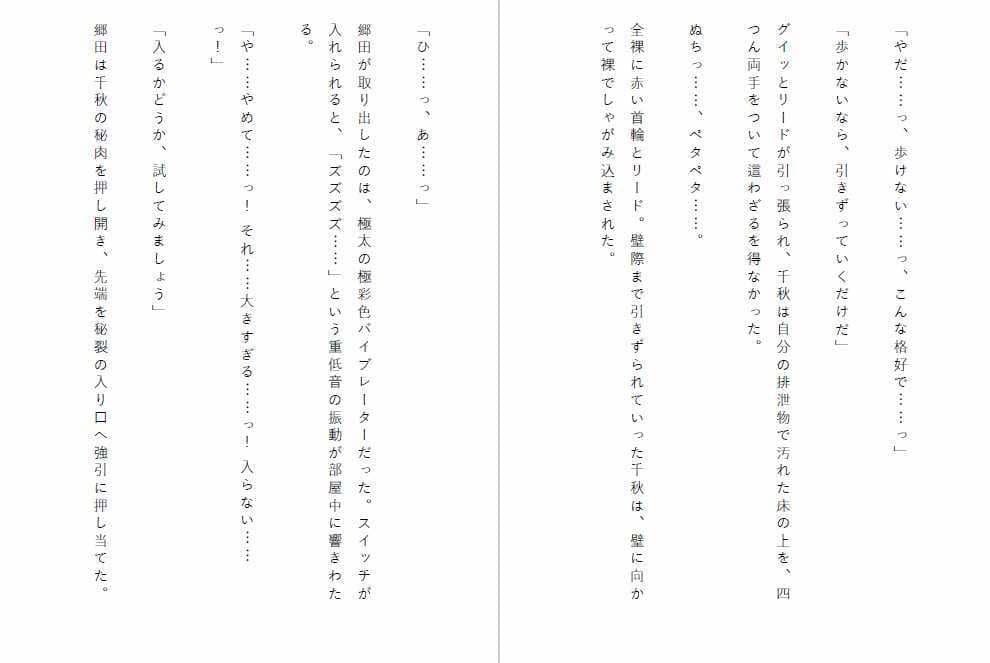 「やだ……っ、歩けない……っ、こんな格好で……っ」
「歩かないなら、引きずっていくだけだ」
グイッとリードが引っ張られ、千秋は自分の排泄物で汚れた床の上を、四
つん両手をついて這わざるを得なかった。
ぬちっ……、ペタペタ……。
全裸に赤い首輪とリード。壁際まで引きずられていった千秋は、壁に向か
って裸でしゃがみ込まされた。
「ひ……っ、あ……っ」
郷田が取り出したのは、極太の極彩色バイブレーターだった。スイッチが
入れられると、「ズズズズ……」という重低音の振動が部屋中に響きわた
る。
「や……やめて……っ！ それ……大きすぎる……っ！ 入らない……
っ！」
「入るかどうか、試してみましょう」
郷田は千秋の秘肉を押し開き、先端を秘裂の入り口へ強引に押し当てた。